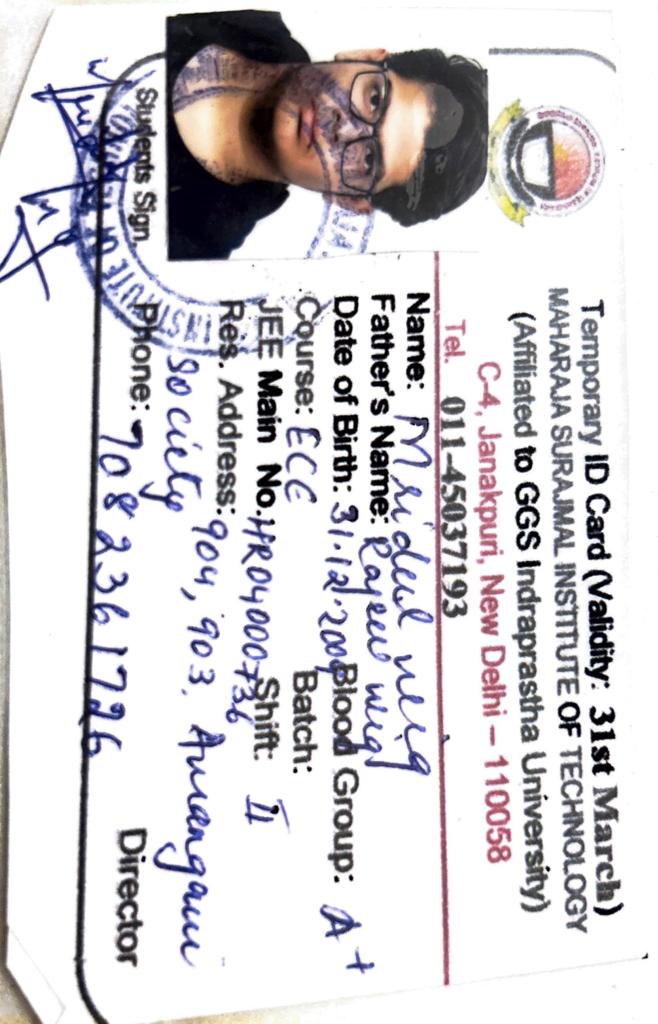 Temporary ID Card (Validity: 31st March)
MAHARAJA SURAJMAL INSTITUTE OF TECHNOLOGY
(Affiliated to GGS Indraprastha University)
C-4, Janakpuri, New Delhi – 110058
Tel. 011-45037193
Name: Mridul neig
Father's Name: Rajeev neig
Date of Birth: 31.12.2004 Blood Group: A+
Course: ECE Batch:
JEE Main No. HR04000736 Shift: II
Res. Address: 904, 903, Amangani
Society
Phone: 7082361726
Students Sign.
Director